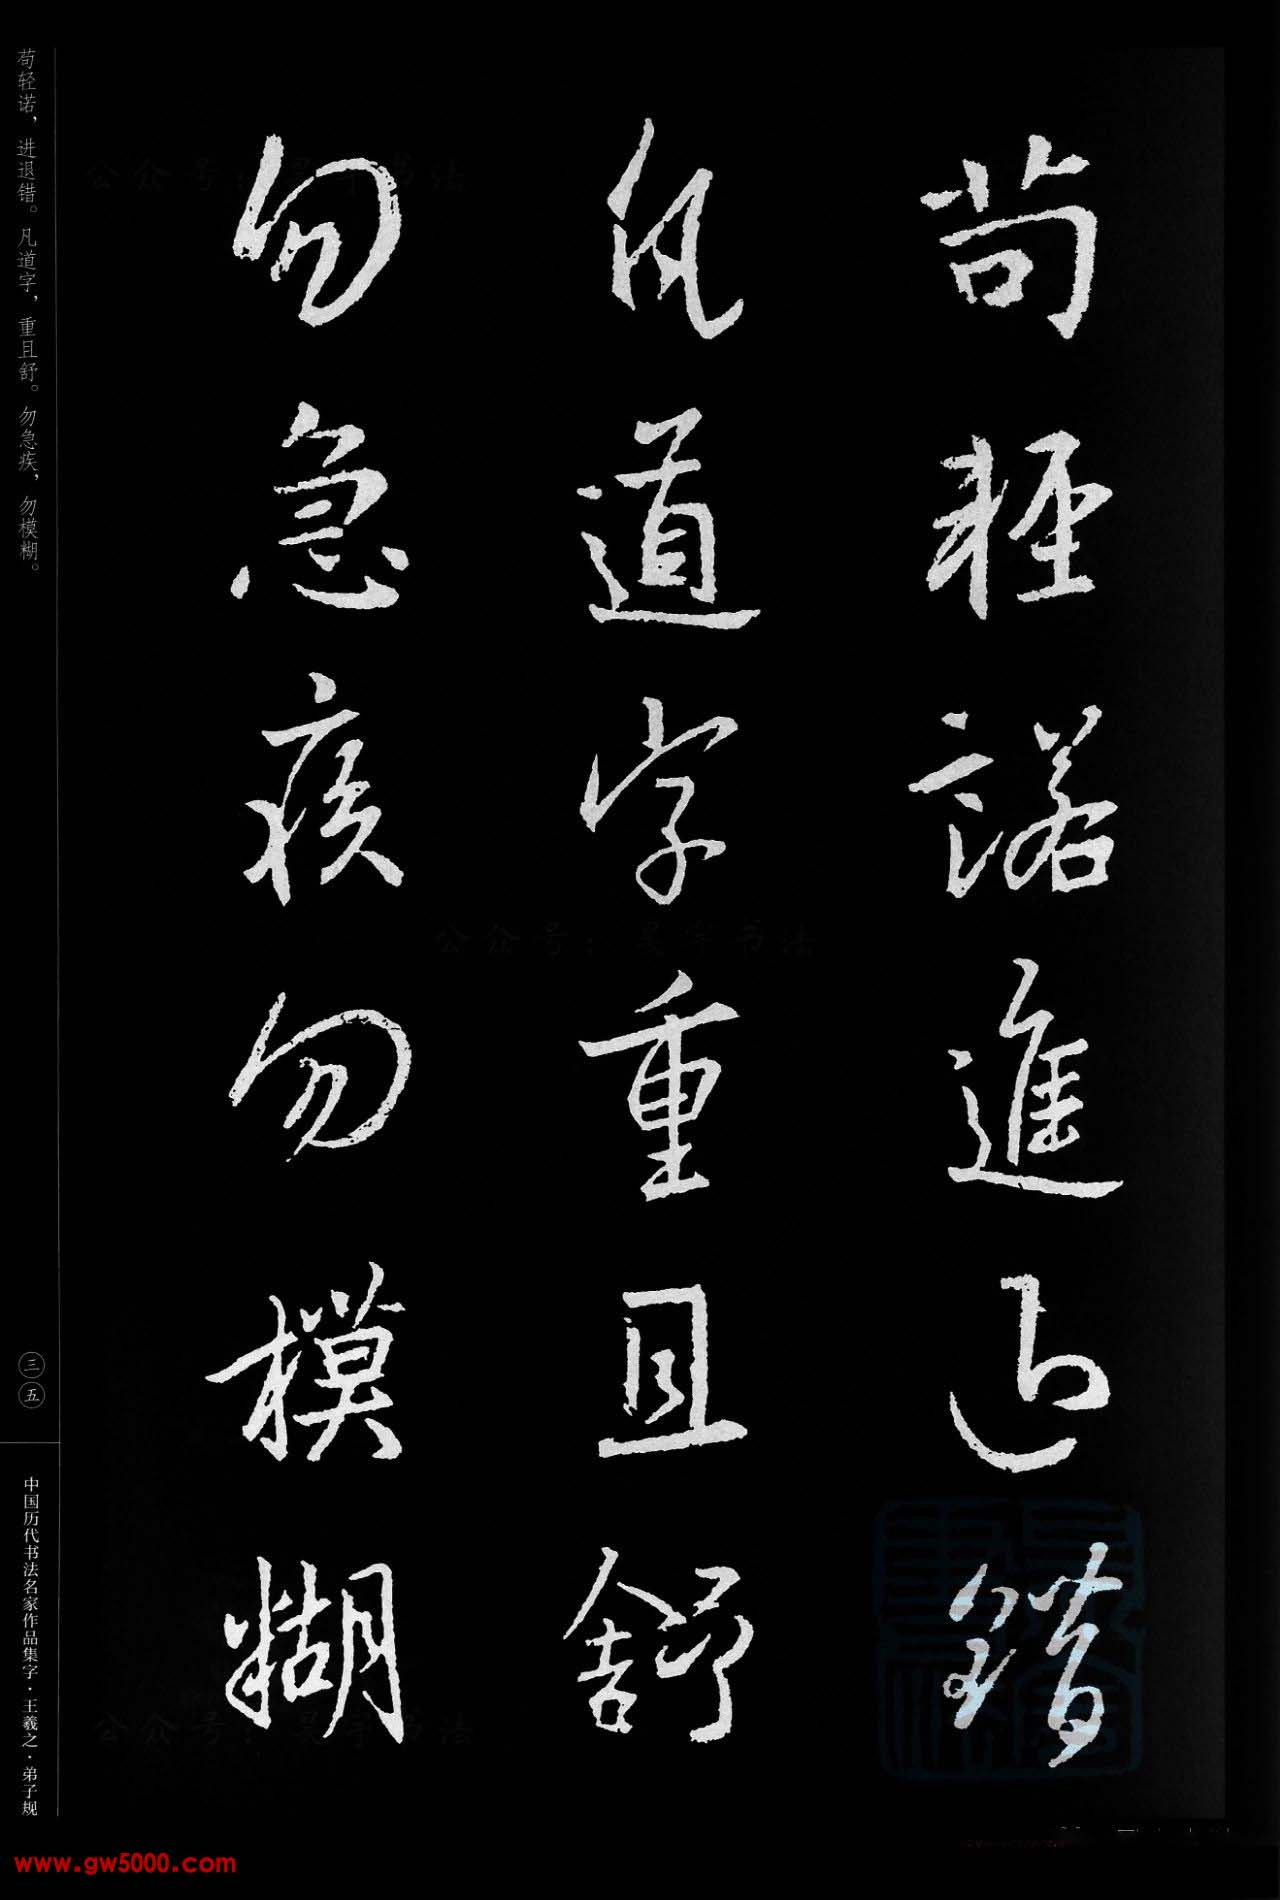 苟輕諾進退錯
凡道字重且舒
勿急疾勿模糊
苟轻诺，进退错。凡道字，重且舒。勿急疾，勿模糊。
三五
中国历代书法名家作品集字·王羲之·弟子规
公众号：昊宇书法
公众号：昊宇书法
公众号：昊宇书法
www.gw5000.com